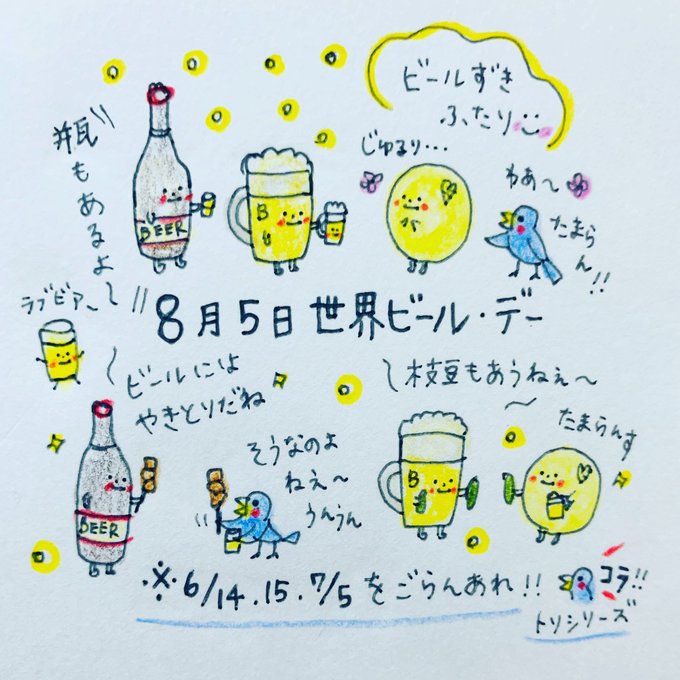 ビールずき
ふたり
じゅるり…
わあ〜
たまらん!!
瓶もあるよ〜
BEER
B
8月5日世界ビール・デー
ラブビア〜
ビールには
やきとりだね
そうなのよ
ねえ〜
うんうん
枝豆もあうねぇ〜
たまらんす
BEER
B
※6/14.15.7/5をごらんあれ!!
コラ!!
トリシリーズ